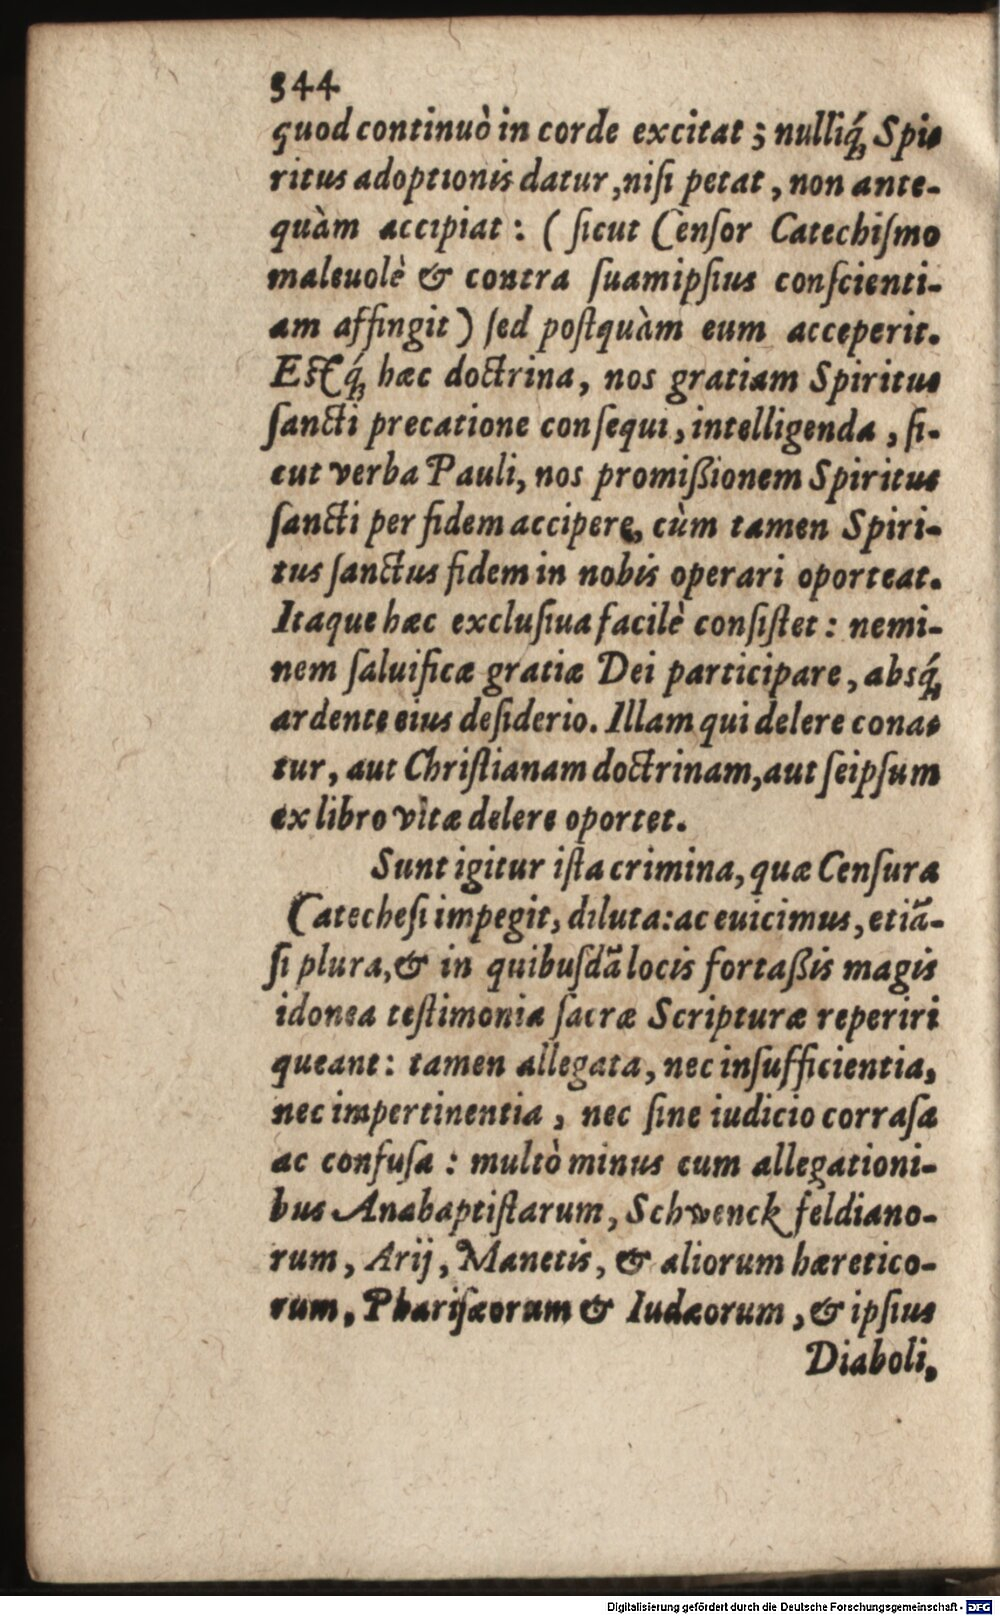 344
quod continuò in corde excitat; nulliq́; Spi-
ritus adoptionis datur, nisi petat, non ante-
quàm accipiat: (sicut Censor Catechismo
maleuolè & contra suamipsius conscienti-
am affingit) sed postquàm eum acceperit.
Estq́; hæc doctrina, nos gratiam Spiritus
sancti precatione consequi, intelligenda, si-
cut verba Pauli, nos promißionem Spiritus
sancti per fidem accipere, cùm tamen Spiri-
tus sanctus fidem in nobis operari oporteat.
Itaque hæc exclusiua facilè consistet: nemi-
nem saluificæ gratiæ Dei participare, absq́;
ardente eius desiderio. Illam qui delere cona-
tur, aut Christianam doctrinam, aut seipsum
ex libro vitæ delere oportet.
Sunt igitur ista crimina, quæ Censura
Catechesi impegit, diluta: ac euicimus, etiã-
si plura, & in quibusdã locis fortaßis magis
idonea testimonia sacræ Scripturæ reperiri
queant: tamen allegata, nec insufficientia,
nec impertinentia, nec sine iudicio corrasa
ac confusa: multò minus cum allegationi-
bus Anabaptistarum, Schwenckfeldiano-
rum, Arij, Manetis, & aliorum hæretico-
rum, Pharisæorum & Iudæorum, & ipsius
Diaboli,
Digitalisierung gefördert durch die Deutsche Forschungsgemeinschaft - DFG